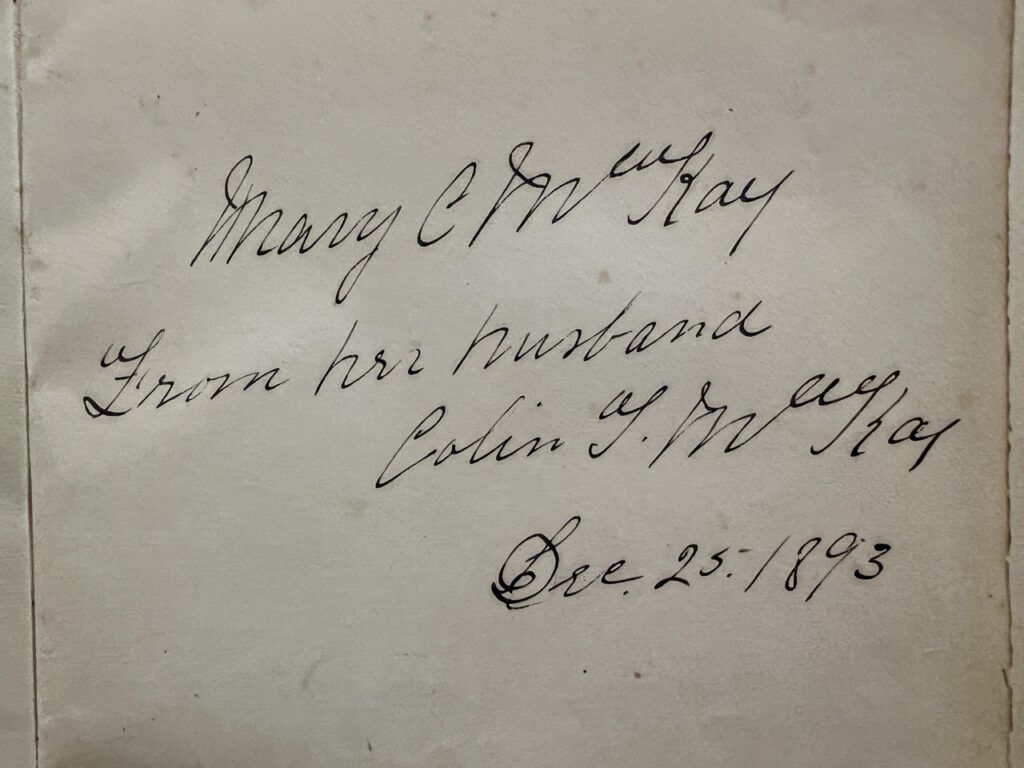 Mary C McKay
From her husband
Colin F. McKay
Dec. 25. 1893